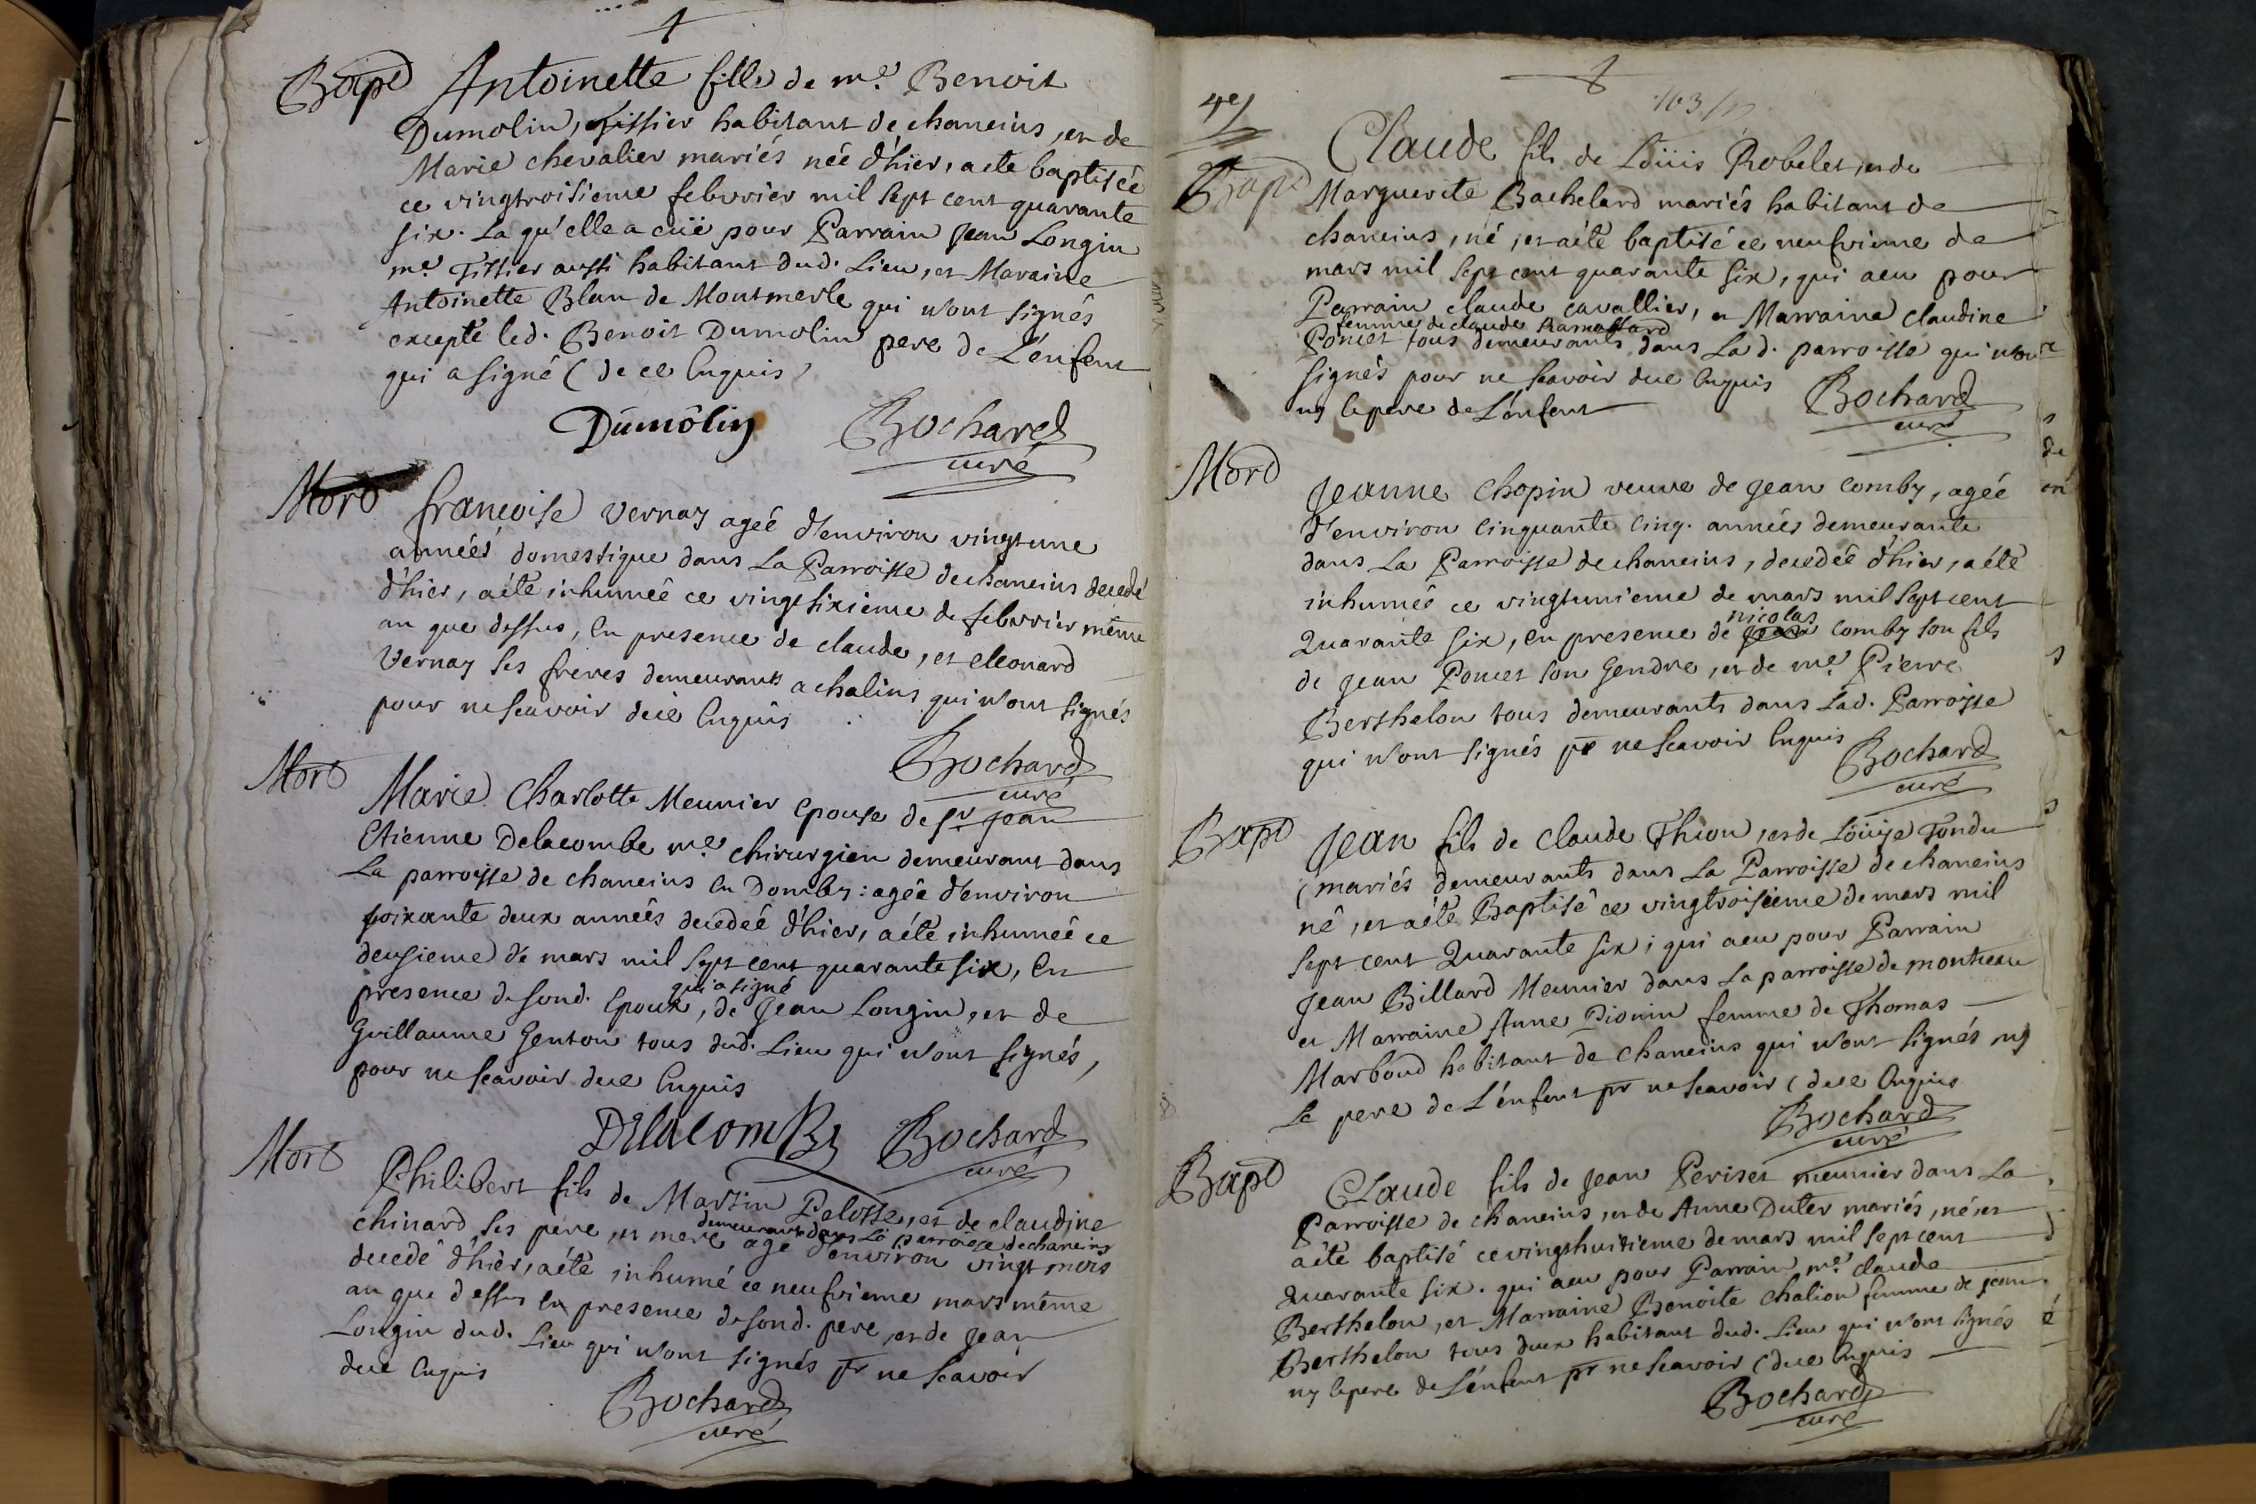 Bapt Antoinette fille de me. Benoit
Dumolin, Tissier habitant de chaneins, et de
Marie chevalier mariés née d'hier, a ete baptisée
ce vingtroisieme febvrier mil sept cent quarante
six. La qu'elle a eüe pour Parrain Jean Longin
me. Tissier aussi habitant dud. Lieu, et Maraine
Antoinette Blan de Montmerle qui n'ont signés
excepté led. Benoit Dumolin pere de L'énfent
qui a signé (de ce Enquis)
Dumôlin Bochard
curé
Mort francoise Vernay ageé d'environ vingtune
années domestique dans La Parroisse de chaneins decedé
d'hier, a été inhumeé ce vingtsixieme de febvrier même
an que dessus, En presence de claude, et eleonard
Vernay ses freres demeurants a chalins qui n'ont signés
pour ne scavoir deüe Enquis
Bochard
curé
Mort Marie Charlotte Meunier Epouse de sr Jean
Etienne Delacombe me. chirurgien demeurant dans
La parroisse de chaneins En Dombes: agée d'environ
soixante deux années decedeé d'hier, a été inhumeé ce
deusieme de mars mil sept cent quarante six, En
qui a signé
presence de sond. Epoux, de Jean Longin, et de
Guillaume Genton tous dud. Lieu qui n'ont signés,
pour ne scavoir due Enquis
Delacomby Bochard
curé
Mort Philibert fils de Martin Pelosse, et de claudine
demeurants dans La parroisse de chaneins
chinard, ses pere, et mere agé d'environ vingt mois
decedé d'hier, a été inhumé ce neufvieme mars même
an que dessus en presence de sond. pere, et de Jean
Longin dud. Lieu qui n'ont signés pr ne scavoir
due Enquis
Bochard
curé
4e/
103
Bapt Claude fils de Loüis Robelet, et de
Marguerite Bachelard mariés habitant de
chaneins, né, et a été baptisé ce neufvieme de
mars mil sept cent quarante six, qui a eu pour
Parrain claude cavallier, et Marraine claudine
femme de claude Ramaffard
Poncet tous demeurants dans La d. parroisse qui n'ont
signés pour ne scavoir due Enquis
ny le pere de L'énfent Bochard
curé
Mort Jeanne Chopin veuve de Jean Comby, agée
d'environ Cinquante Cinq. années demeurante
dans La Parroisse de chaneins, decedée d'hier, a été
inhumée ce vingtunieme de mars mil sept cent
nicolas
Quarante six, En presence de Jean Comby son fils
de Jean Poncet son Gendre, et de me. Pierre
Berthelon tous demeurants dans Lad. Parroisse
qui n'ont signés pr ne scavoir Enquis
Bochard
curé
Bapt Jean fils de Claude Thion, et de Loüise Tondu
mariés demeurants dans La Parroisse de chaneins
né, et a été Baptisé ce vingtroisieme de mars mil
sept cent Quarante six; qui a eu pour Parrain
Jean Billard Meunier dans La parroisse de montceau
et Marraine Anne Pionin femme de Thomas
Marboud habitant de chaneins qui n'ont signés ny
Le pere de L'énfent pr ne scavoir (due Enquis
Bochard
curé
Bapt Claude fils de Jean Periset meunier dans La
Parroisse de chaneins, et de Anne Duter mariés, né, et
a été baptisé ce vingthuitieme de mars mil sept cent
Quarante six. qui a eu pour Parrain me. claude
Berthelon, et Marraine Benoite chalion femme de Jean
Berthelon tous deux habitant dud. Lieu qui n'ont signés
ny le pere de L'énfent pr ne scavoir (due Enquis
Bochard
curé